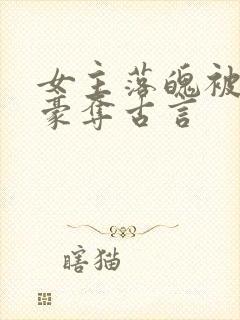 女主落魄被
豪夺古言
瞎猫